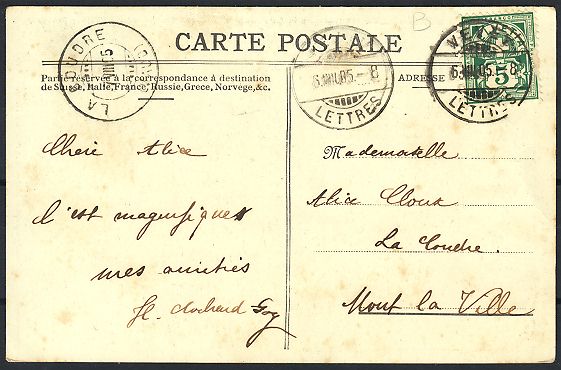 B
CARTE POSTALE
Partie réservée à la correspondance à destination
de Suisse, Italie, France, Russie, Grece, Norvege, &c.
ADRESSE
LA COUDRE
LETTRES
LETTRES
5
Chère Alice
C'est magnifique
mes amitiés
Mademoiselle
Alice Cloux
La Coudre.
Mont la Ville